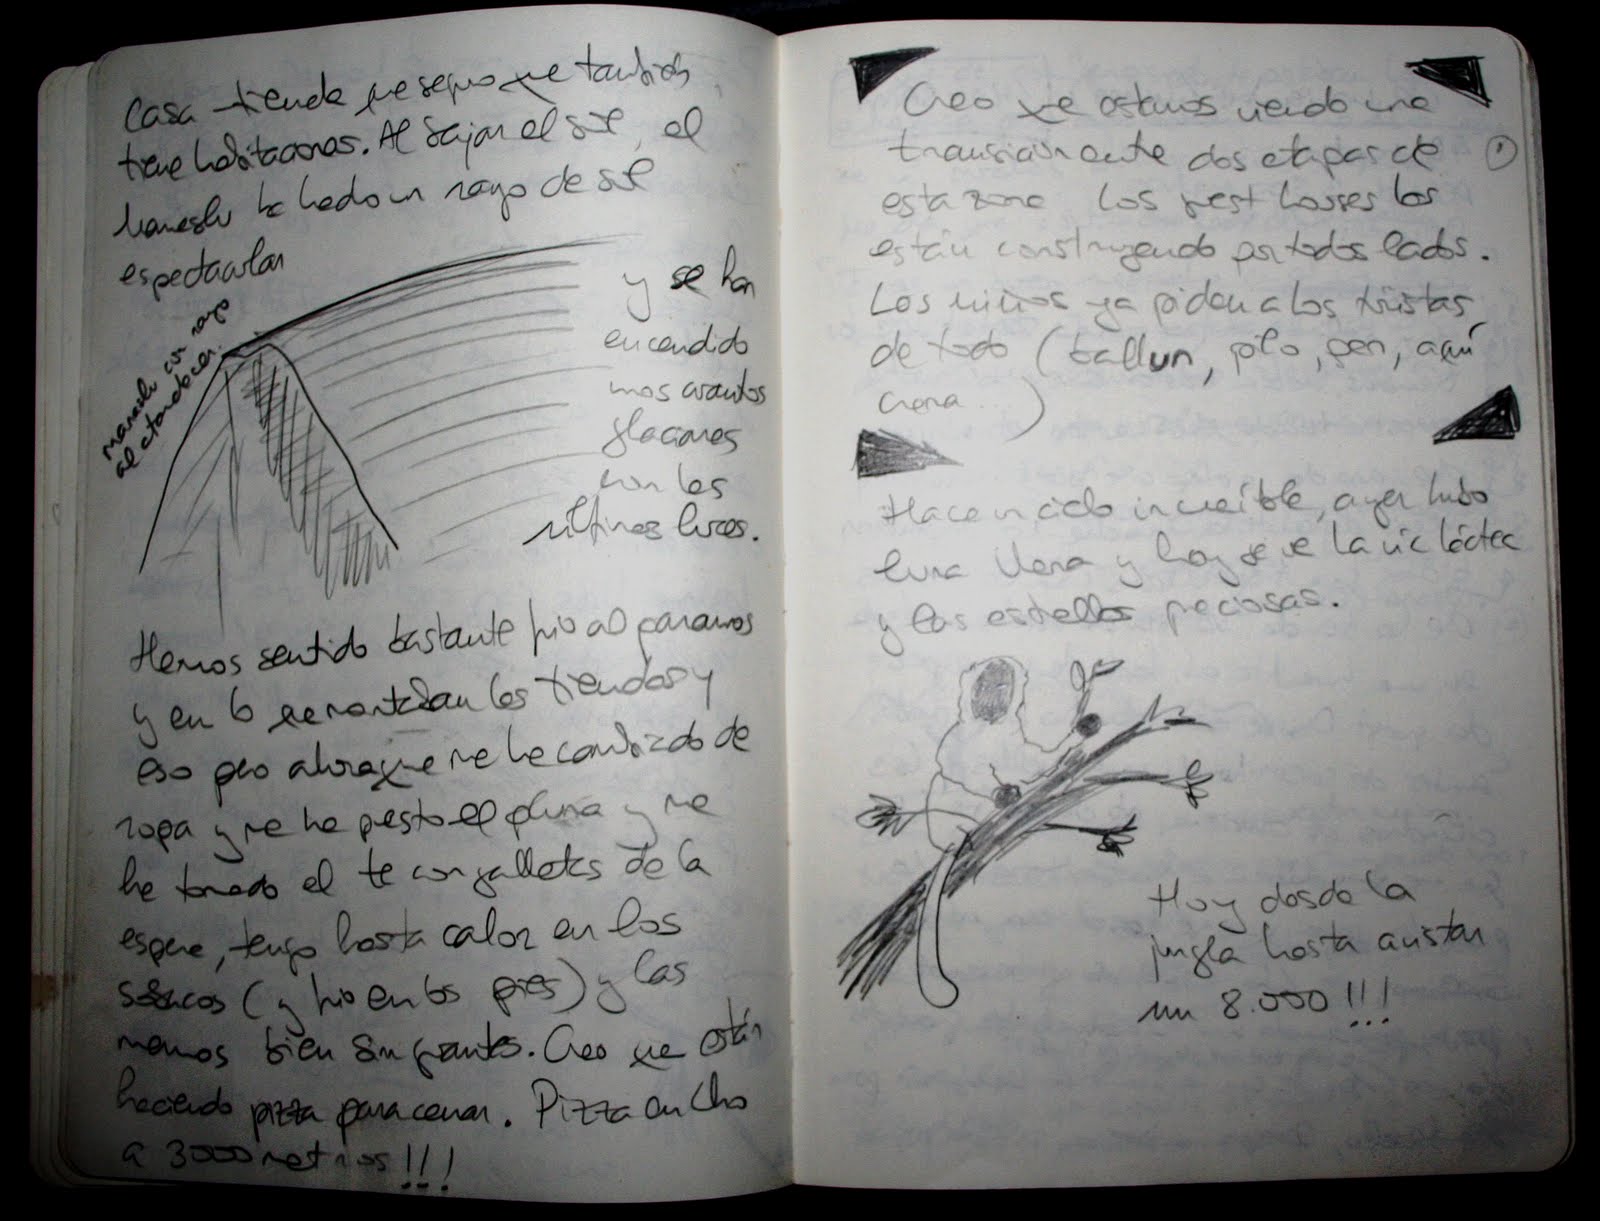 Casa tienda que seguro que también
tiene habitaciones. Al bajar el sol, el
Manaslu ha hecho un rayo de sol
espectacular
manaslu con rayo
al atardecer.
y se han
encendido
unos cuantos
glaciares
con las
últimas luces.
Hemos sentido bastante frio al pararnos
y en lo que montaban las tiendas y
eso pero ahora que me he cambiado de
ropa y me he puesto el pluma y me
he tomado el te con galletas de la
espera, tengo hasta calor en los
sobacos (y frio en los pies) y las
manos bien sin guantes. Creo que están
haciendo pizza para cenar. Pizza en Cho
a 3000 metros!!!
Creo que estamos viendo una
transición entre dos etapas de
esta zona Los guest houses los
están construyendo por todos lados.
Los niños ya piden a los turistas
de todo (ballun, pilo, pen, aquí
crema...)
Hace un cielo increíble, ayer hubo
luna llena y hoy se ve la via láctea
y las estrellas preciosas.
Hoy desde la
jungla hasta avistar
un 8.000!!!